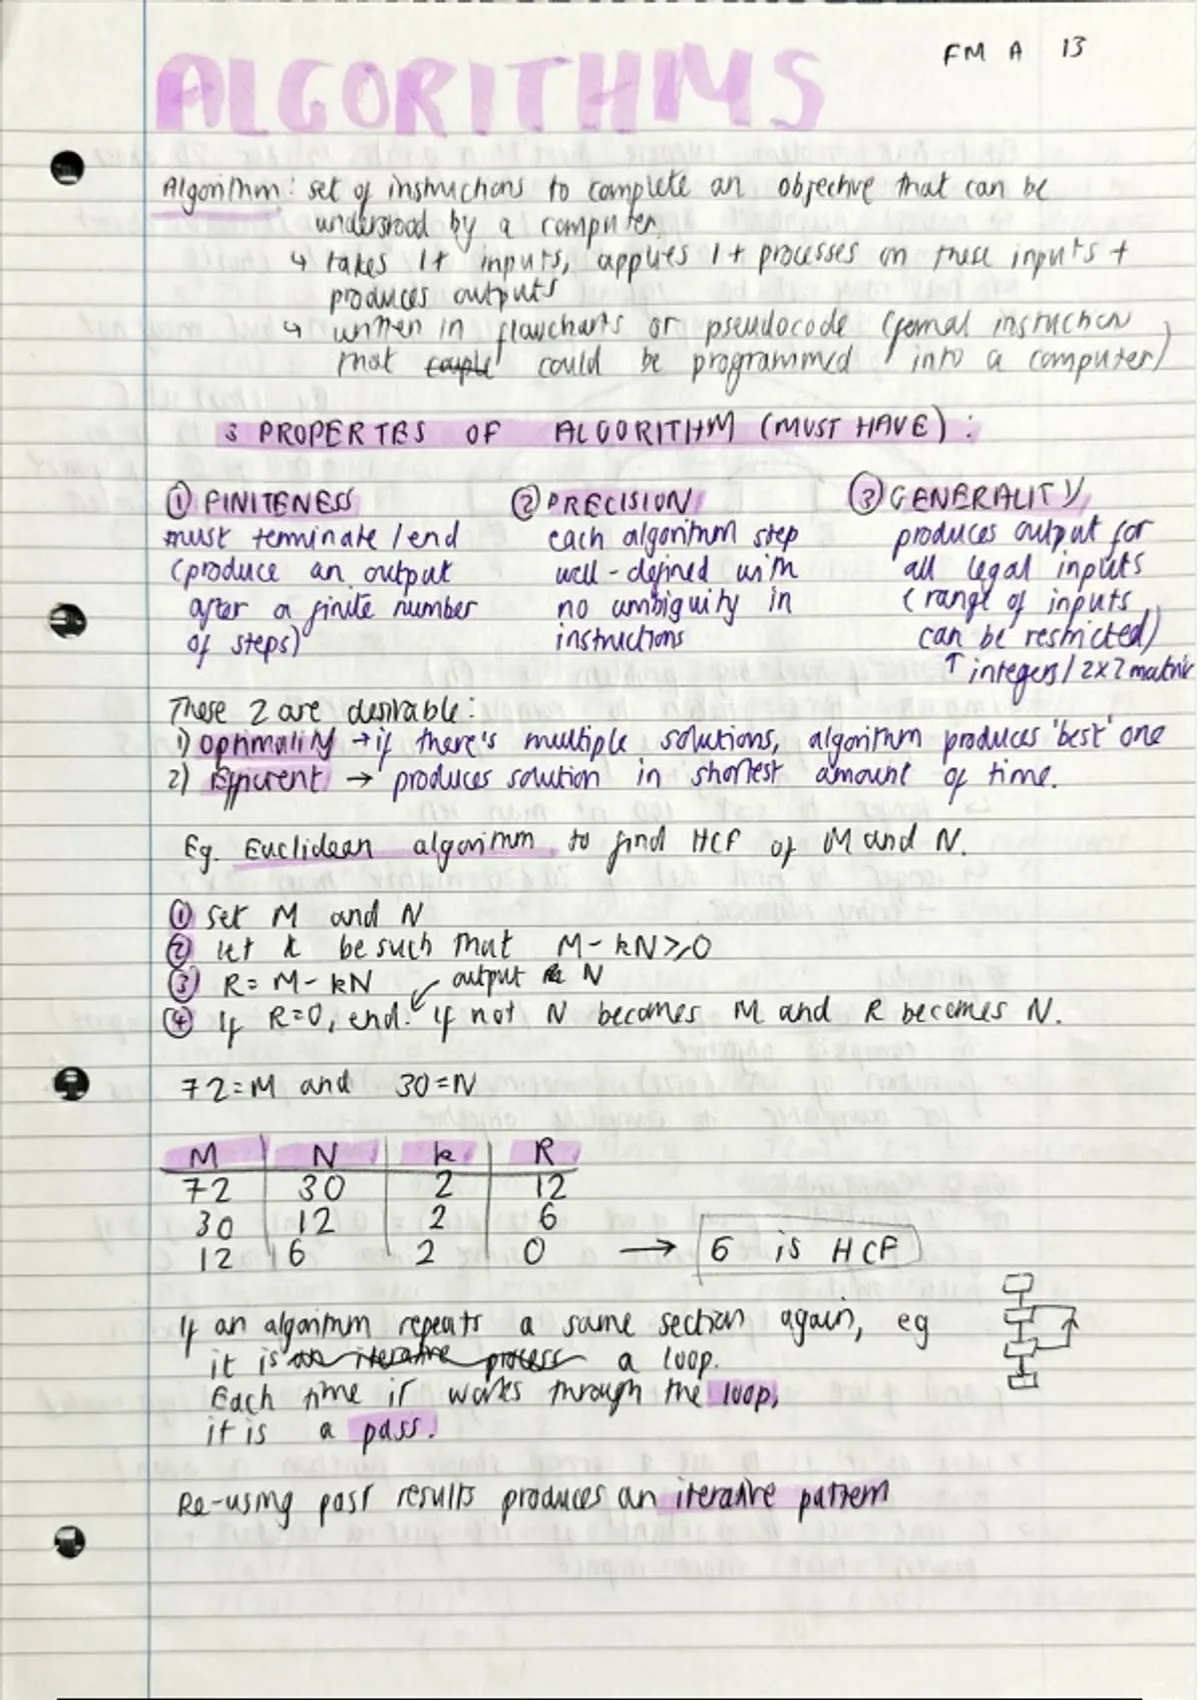 FM A 13
ALGORITHMS
Algorithm: set of instructions to complete an objective that can be
understood by a computer.
↳ takes 1+ inputs, applies 1+ processes on these inputs +
produces outputs
↳ written in flowcharts or pseudocode (formal instruction
that could be programmed into a computer)
3 PROPERTIES OF ALGORITHM (MUST HAVE):
① FINITENESS
must terminate/end
(produce an output
after a finite number
of steps)
② PRECISION
each algorithm step
well-defined with
no ambiguity in
instructions
③ GENERALITY
produces output for
all legal inputs
(range of inputs
can be restricted)
↑ integers/2x2 matrix
These 2 are desirable:
1) Optimality → if there's multiple solutions, algorithm produces 'best' one
2) Efficient → produces solution in shortest amount of time.
Eg. Euclidean algorithm to find HCF of M and N.
① Set M and N
② let k be such that M-kN≥0
③ R=M-kN
output N
④ If R=0, end. If not N becomes M and R becomes N.
72=M and 30=N
M N k R
72 30 2 12
30 12 2 6
12 6 2 0 → 6 is HCF
If an algorithm repeats a same section again, eg
it is a loop.
Each time it works through the loop,
it is a pass.
Re-using past results produces an iterative pattern